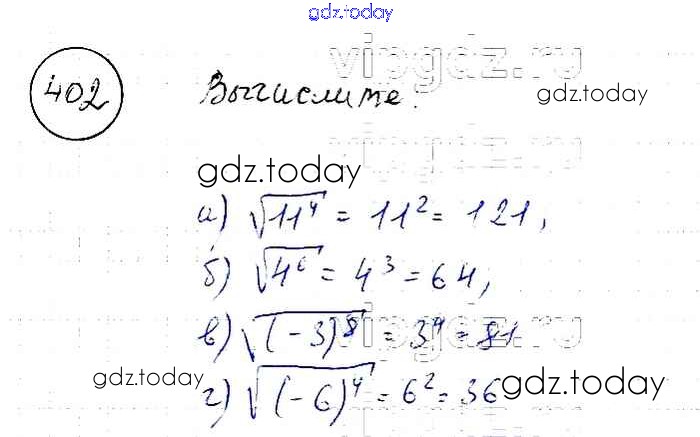 gdz.today
vipgdz.ru
402 Вычислите:
gdz.today
gdz.today
а) √11⁴ = 11² = 121,
б) √4⁶ = 4³ = 64,
в) √(-3)⁸ = 3⁴ = 81
vipgdz.ru
gdz.today
г) √(-6)⁴ = 6² = 36
gdz.today